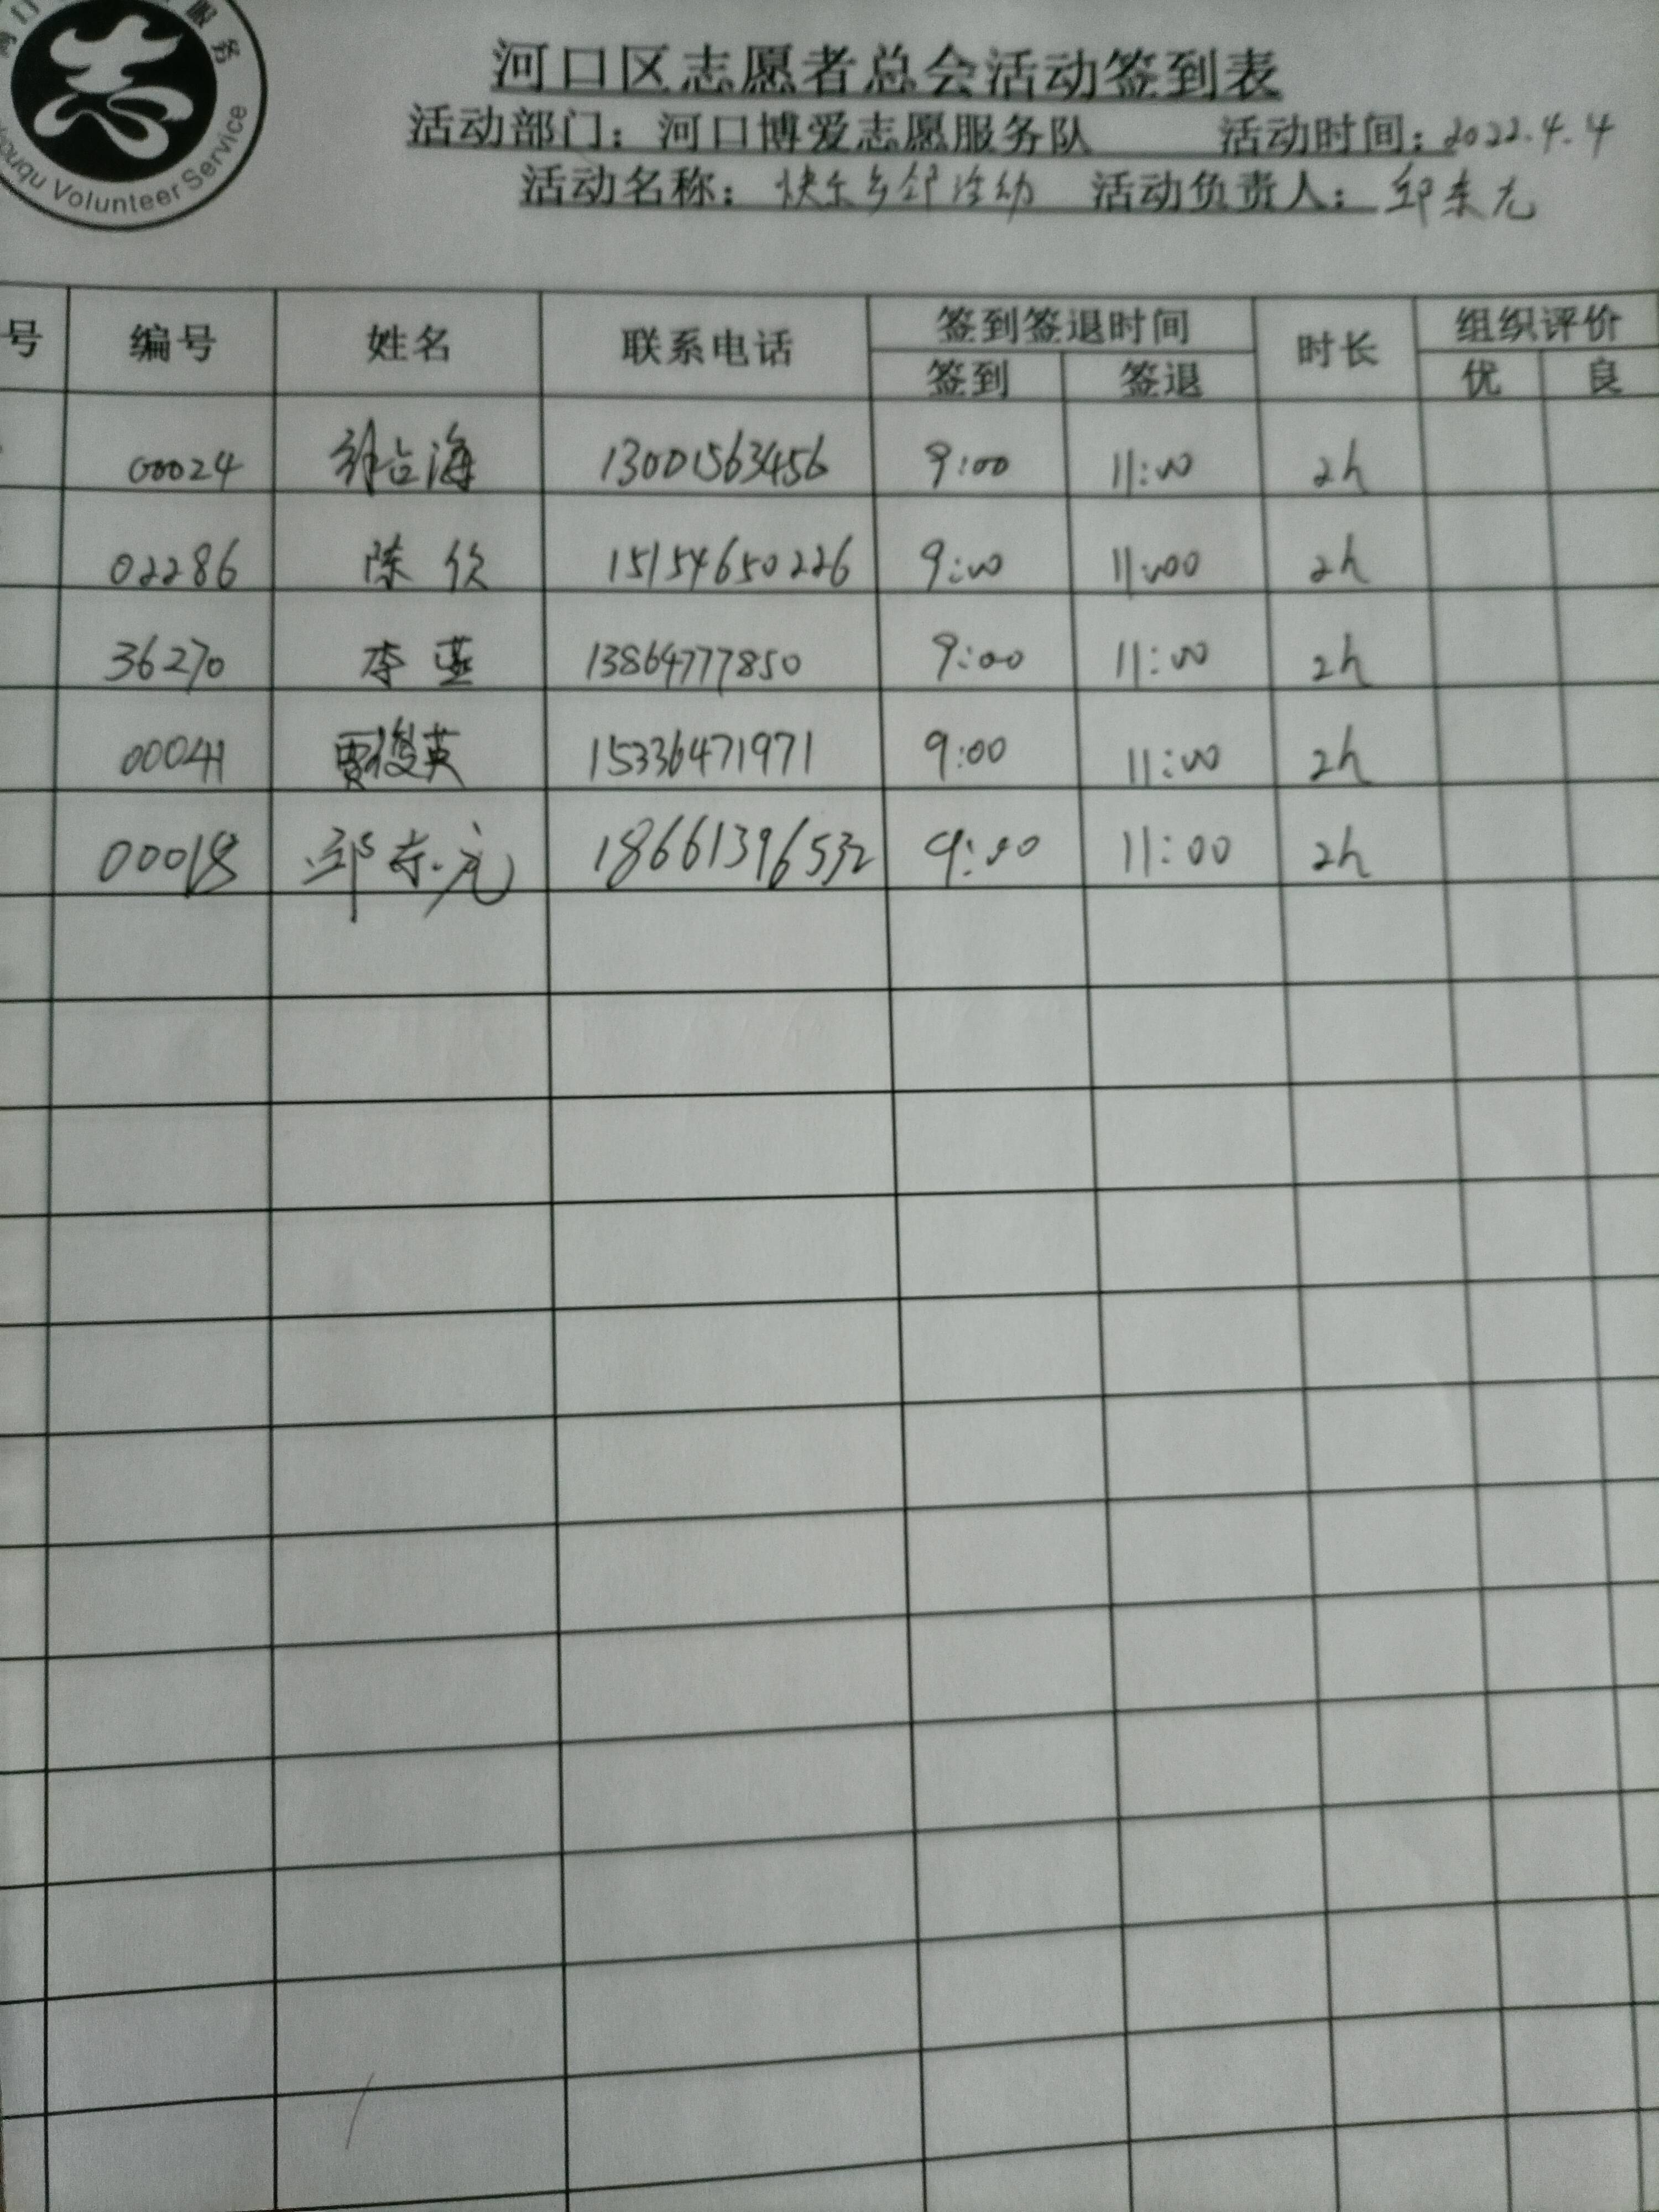 服务
Volunteer Service
河口区志愿者总会活动签到表
活动部门：河口博爱志愿服务队 活动时间：2022.4.4
活动名称：快乐乡邻活动 活动负责人：邱东元
号 编号 姓名 联系电话 签到签退时间 时长 组织评价
签到 签退 优 良
00024 海 13001563456 9:00 11:00 2h
02286 陈欣 15154650226 9:00 11:00 2h
36270 李燕 13864777850 9:00 11:00 2h
00041 贾俊英 15336471971 9:00 11:00 2h
00018 邱东元 18661396532 9:00 11:00 2h